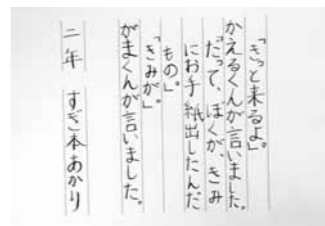 「きっと来るよ」。
かえるくんが言いました。
「だって、ぼくが、きみ
にお手紙出したんだ
もの」。
「きみが」。
がまくんが言いました。
二年 すぎ本あかり